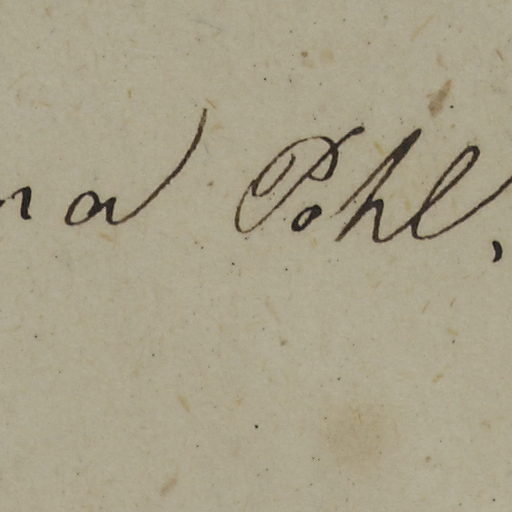 na Pohl,